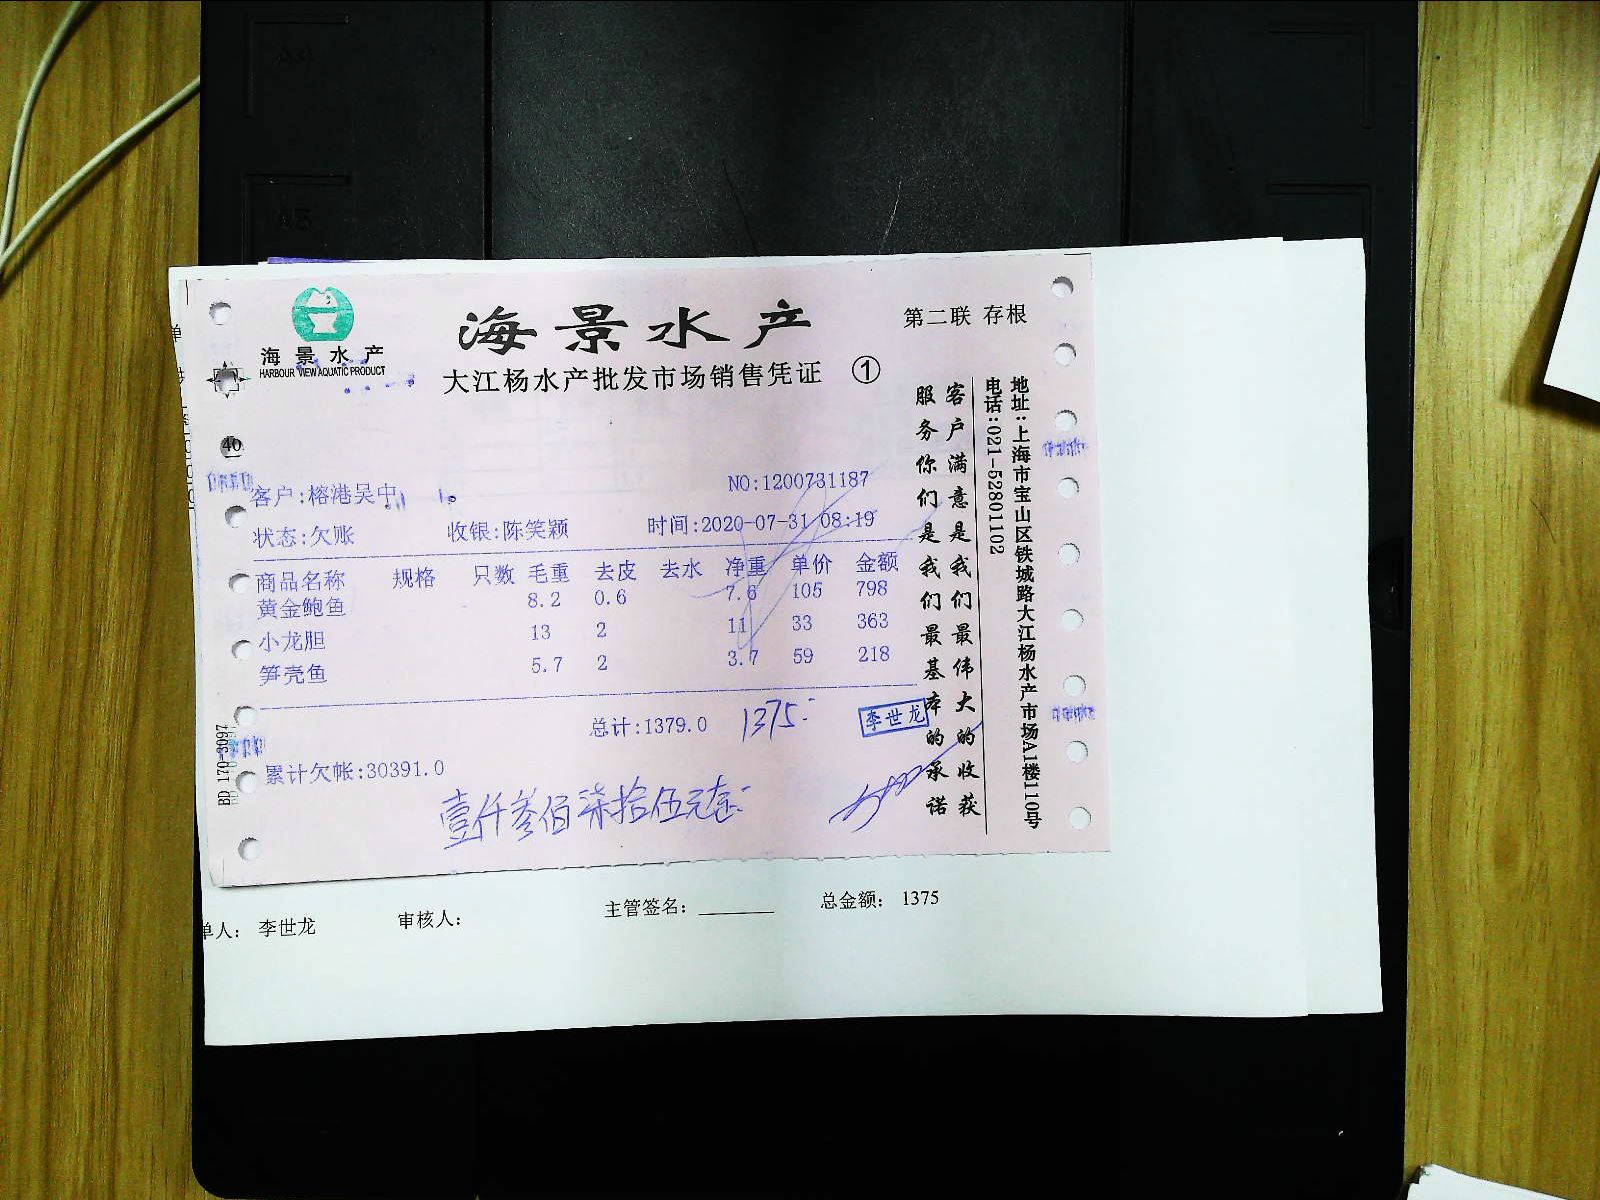 A4
A5
海景水产
HARBOUR VIEW AQUATIC PRODUCT
海景水产
第二联 存根
大江杨水产批发市场销售凭证 ①
40
客户:榕港吴中
NO:1200731187
状态:欠账 收银:陈笑颖 时间:2020-07-31 08:19
商品名称 规格 只数 毛重 去皮 去水 净重 单价 金额
黄金鲍鱼 8.2 0.6 7.6 105 798
小龙胆 13 2 11 33 363
笋壳鱼 5.7 2 3.7 59 218
总计:1379.0 1375.-
李世龙
累计欠帐:30391.0
壹仟叁佰柒拾伍元
BD 170-3097
客户满意是我们最伟大的收获
服务你们是我们最基本的承诺
地址:上海市宝山区铁城路大江杨水产市场A1楼110号
电话:021-52801102
单人: 李世龙 审核人: 主管签名: 总金额: 1375